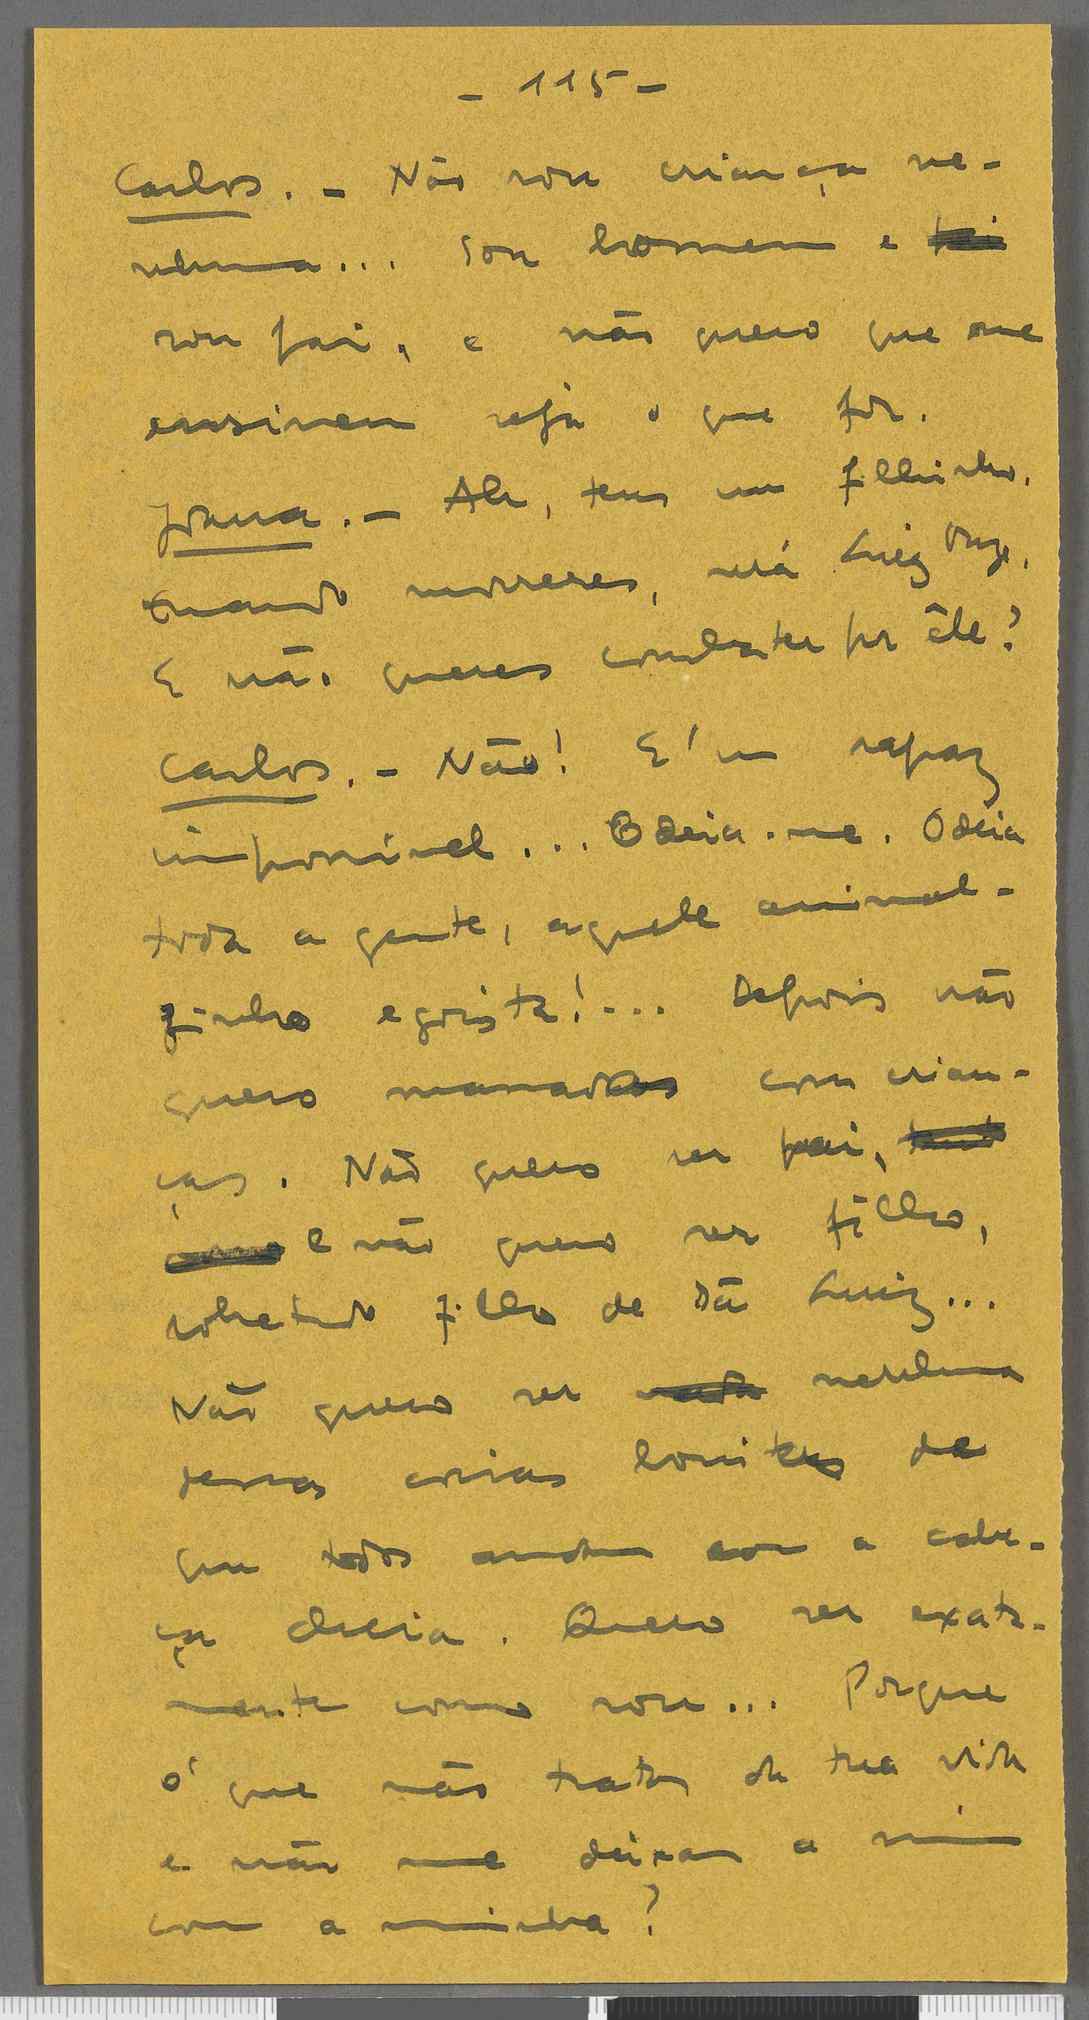 - 115 -
Carlos. - Não sou criança ne-
nhuma... Sou homem e
sou pai, e não quero que me
ensinem seja o que for.
Joana. - Ah, tens um filhinho.
Quando morreres, será Luiz Onze.
E não queres combater por êle?
Carlos. - Não! E' um rapaz
impossível... Odeia-me. Odeia
toda a gente, aquele animal-
zinho egoista!... Depois não
quero massadas com crian-
ças. Não quero ser pai,
e não quero ser filho,
sobretudo filho de São Luiz...
Não quero ser nenhuma
dessas coisas bonitas de
que todos andam com a cabe-
ça cheia. Quero ser exata-
mente como sou... Porque
é que não tratas da tua vida
e não me deixas a mim
com a minha?